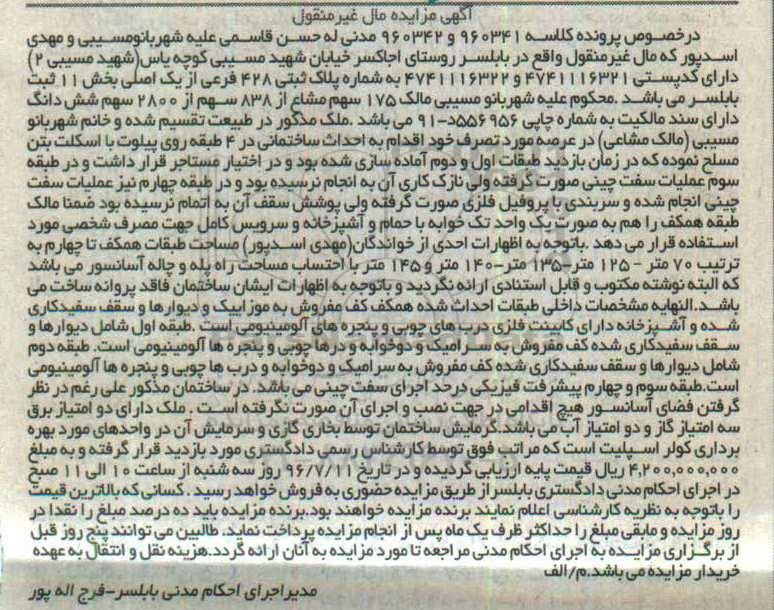 آگهی مزایده مال غیرمنقول
درخصوص پرونده کلاسه ۹۶۰۳۴۱ و ۹۶۰۳۴۲ مدنی له حسن قاسمی علیه شهربانومسیبی و مهدی
اسدپور که مال غیرمنقول واقع در بابلسر روستای اجاکسر خیابان شهید مسیبی کوچه یاس(شهید مسیبی ۲)
دارای کدپستی ۴۷۴۱۱۱۶۳۲۱ و ۴۷۴۱۱۱۶۳۲۲ به شماره پلاک ثبتی ۴۲۸ فرعی از یک اصلی بخش ۱۱ ثبت
بابلسر می باشد .محکوم علیه شهربانو مسیبی مالک ۱۷۵ سهم مشاع از ۸۳۸ سهم از ۲۸۰۰ سهم شش دانگ
دارای سند مالکیت به شماره چاپی ۵۵۶۹۵۶د-۹۱ می باشد .ملک مذکور در طبیعت تقسیم شده و خانم شهربانو
مسیبی (مالک مشاعی) در عرصه مورد تصرف خود اقدام به احداث ساختمانی در ۴ طبقه روی پیلوت با اسکلت بتن
مسلح نموده که در زمان بازدید طبقات اول و دوم آماده سازی شده بود و در اختیار مستاجر قرار داشت و در طبقه
سوم عملیات سفت چینی صورت گرفته ولی نازک کاری آن به انجام نرسیده بود و در طبقه چهارم نیز عملیات سفت
چینی انجام شده و سربندی با پروفیل فلزی صورت گرفته ولی پوشش سقف آن به اتمام نرسیده بود ضمنا مالک
طبقه همکف را هم به صورت یک واحد تک خوابه با حمام و آشپزخانه و سرویس کامل جهت مصرف شخصی مورد
استفاده قرار می دهد .باتوجه به اظهارات احدی از خواندگان(مهدی اسدپور) مساحت طبقات همکف تا چهارم به
ترتیب ۷۰ متر - ۱۲۵ متر-۱۳۵ متر-۱۴۰ متر و ۱۴۵ متر با احتساب مساحت راه پله و چاله آسانسور می باشد
که البته نوشته مکتوب و قابل استنادی ارائه نگردید و باتوجه به اظهارات ایشان ساختمان فاقد پروانه ساخت می
باشد.النهایه مشخصات داخلی طبقات احداث شده همکف کف مفروش به موزاییک و دیوارها و سقف سفیدکاری
شده و آشپزخانه دارای کابینت فلزی درب های چوبی و پنجره های آلومینیومی است .طبقه اول شامل دیوارها و
سقف سفیدکاری شده کف مفروش به سرامیک و دوخوابه و درها چوبی و پنجره ها آلومینیومی است. طبقه دوم
شامل دیوارها و سقف سفیدکاری شده کف مفروش به سرامیک و دوخوابه و درب ها چوبی و پنجره ها آلومینیومی
است.طبقه سوم و چهارم پیشرفت فیزیکی درحد اجرای سفت چینی می باشد. در ساختمان مذکور علی رغم در نظر
گرفتن فضای آسانسور هیچ اقدامی در جهت نصب و اجرای آن صورت نگرفته است . ملک دارای دو امتیاز برق
سه امتیاز گاز و دو امتیاز آب می باشد.گرمایش ساختمان توسط بخاری گازی و سرمایش آن در واحدهای مورد بهره
برداری کولر اسپلیت است که مراتب فوق توسط کارشناس رسمی دادگستری مورد بازدید قرار گرفته و به مبلغ
۴,۲۰۰,۰۰۰,۰۰۰ ریال قیمت پایه ارزیابی گردیده و در تاریخ ۹۶/۷/۱۱ روز سه شنبه از ساعت ۱۰ الی ۱۱ صبح
در اجرای احکام مدنی دادگستری بابلسر از طریق مزایده حضوری به فروش خواهد رسید . کسانی که بالاترین قیمت
را باتوجه به نظریه کارشناسی اعلام نمایند برنده مزایده خواهند بود.برنده مزایده باید ده درصد مبلغ را نقدا در
روز مزایده و مابقی مبلغ را حداکثر ظرف یک ماه پس از انجام مزایده پرداخت نماید. طالبین می توانند پنج روز قبل
از برگزاری مزایده به اجرای احکام مدنی مراجعه تا مورد مزایده به آنان ارائه گردد.هزینه نقل و انتقال به عهده
خریدار مزایده می باشد.م/الف
مدیراجرای احکام مدنی بابلسر-فرج اله پور